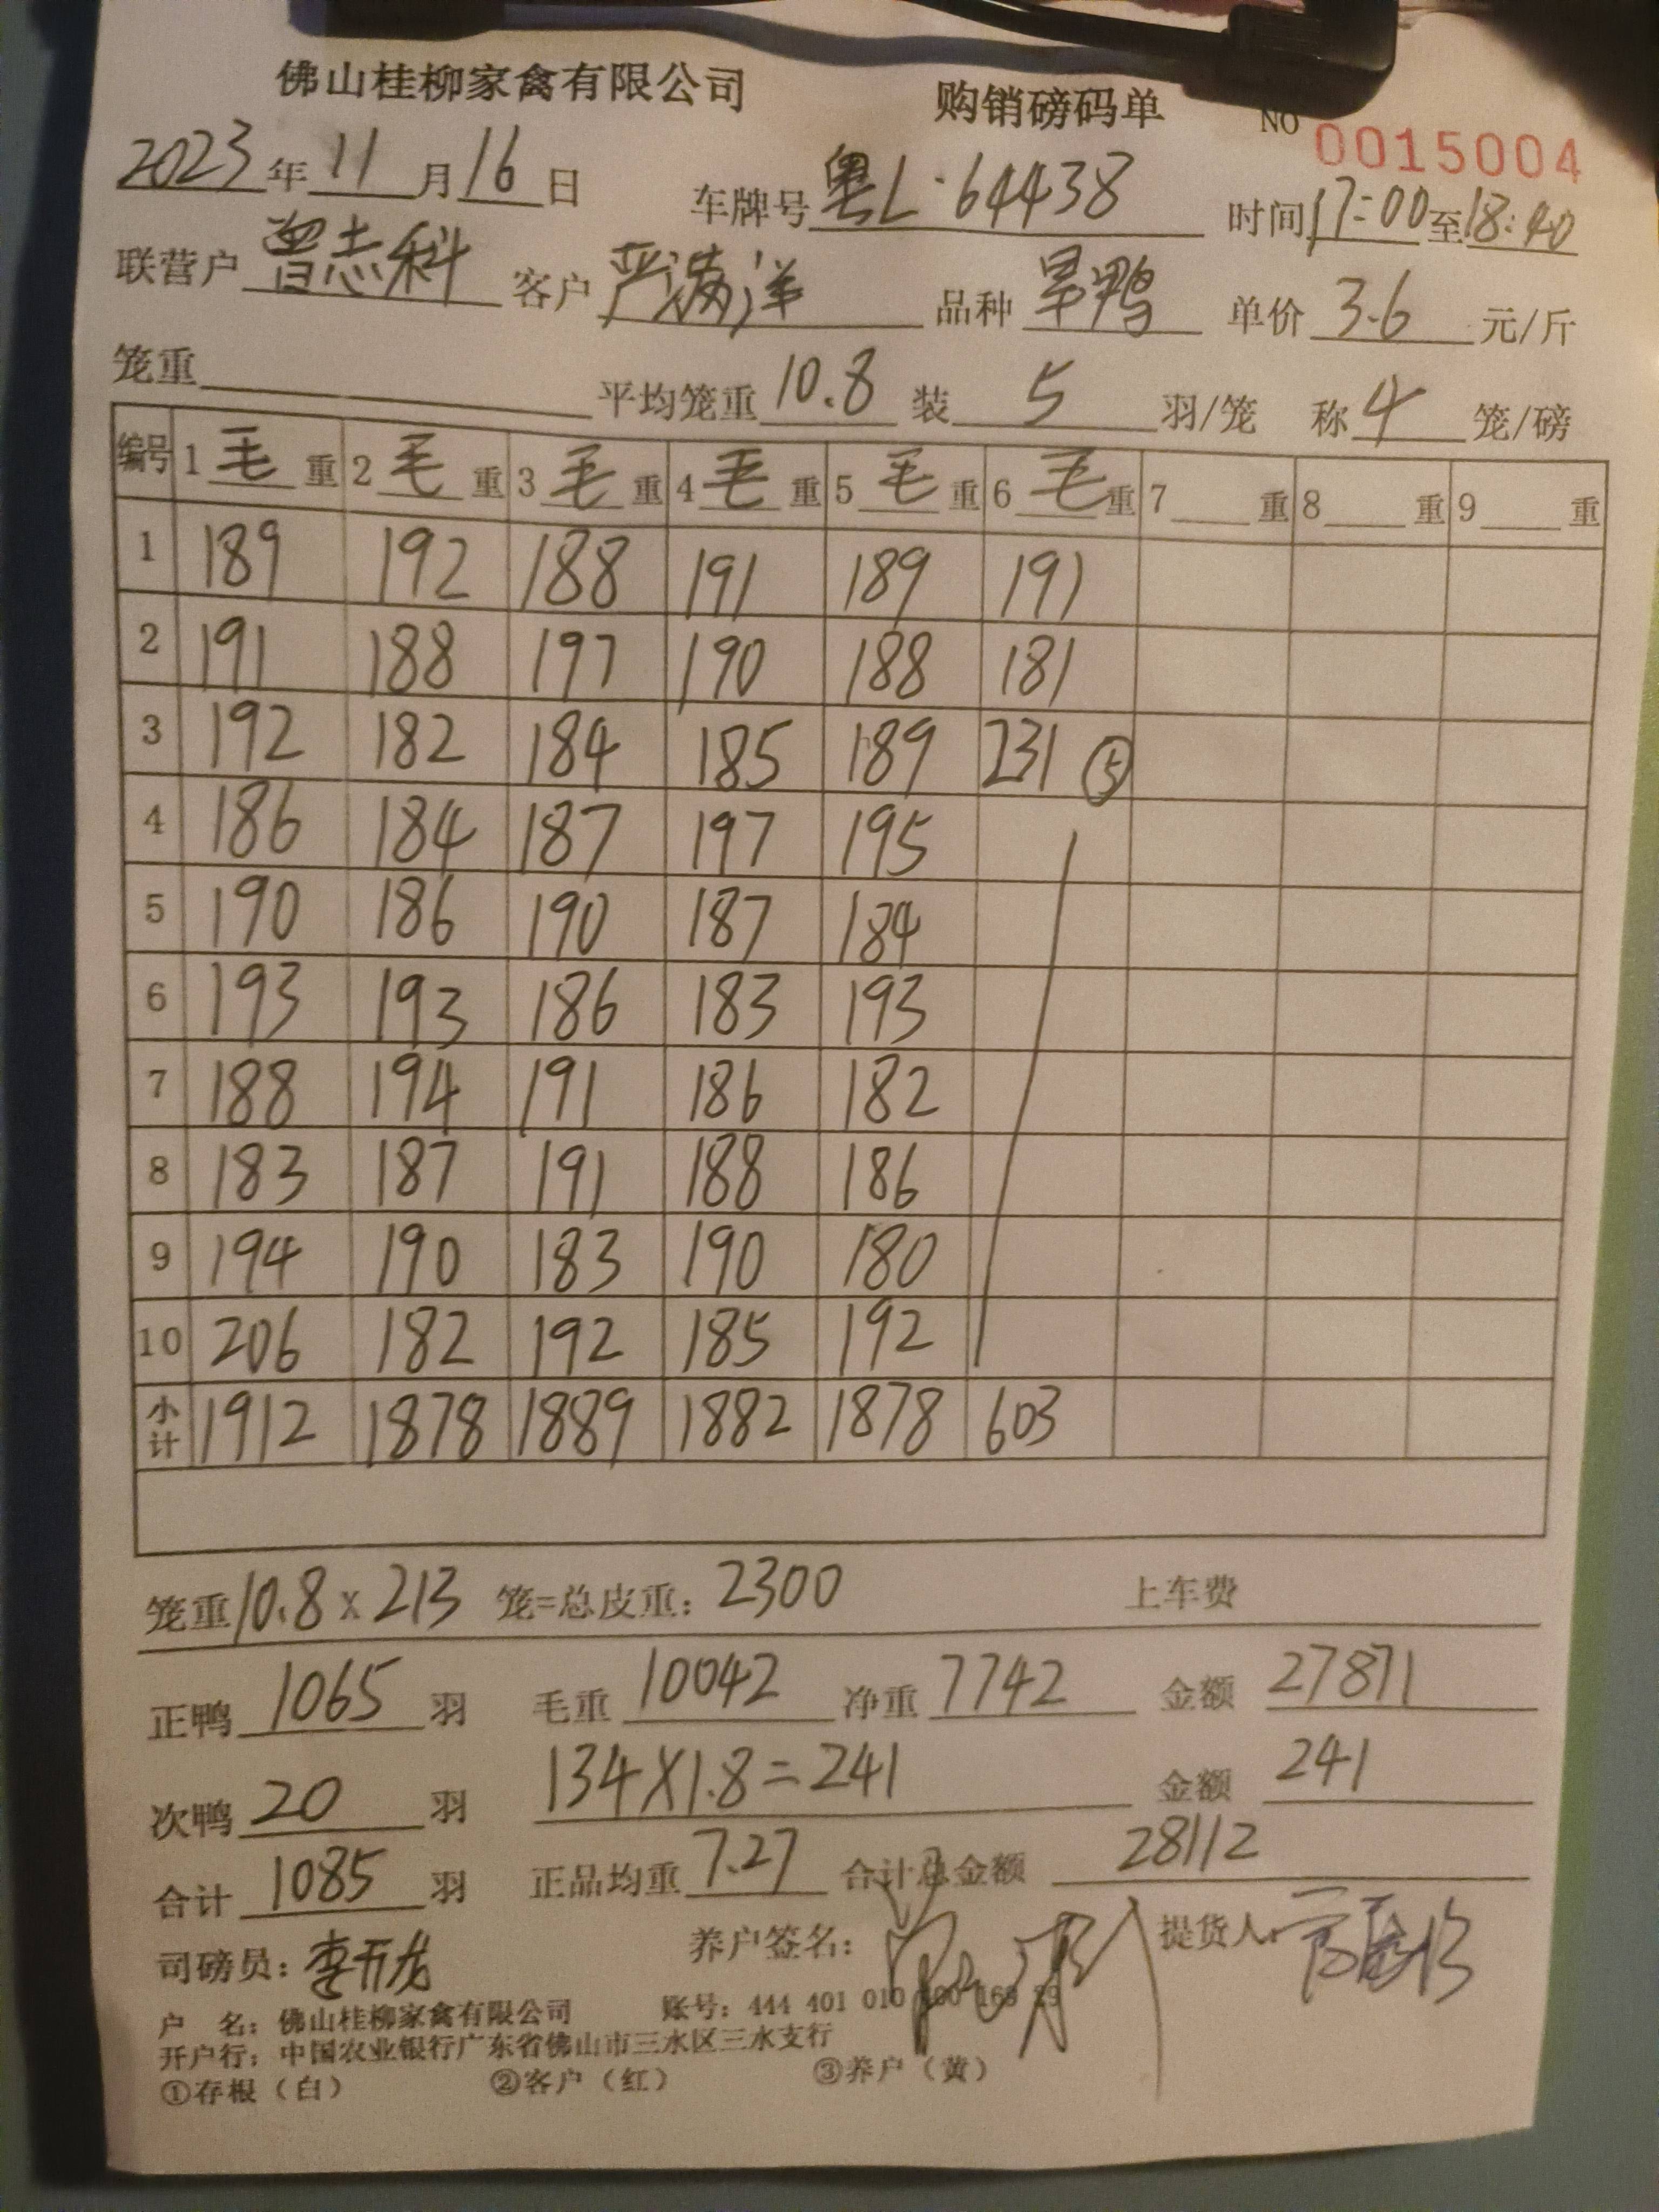 佛山桂柳家禽有限公司 购销磅码单 NO 0015004
2023年11月16日 车牌号粤L·64438 时间17:00至18:40
联营户曾志科 客户严满洋 品种旱鸭 单价3.6元/斤
笼重 平均笼重10.8 装5羽/笼 称4笼/磅
编号 1毛重 2毛重 3毛重 4毛重 5毛重 6毛重 7重 8重 9重
1 189 192 188 191 189 191
2 191 188 197 190 188 181
3 192 182 184 185 189 231 ⑤
4 186 184 187 197 195
5 190 186 190 187 184
6 193 193 186 183 193
7 188 194 191 186 182
8 183 187 191 188 186
9 194 190 183 190 180
10 206 182 192 185 192
小计 1912 1878 1889 1882 1878 603
笼重10.8x213 笼=总皮重:2300 上车费
正鸭1065羽 毛重10042 净重7742 金额27871
次鸭20羽 134X1.8=241 金额241
合计1085羽 正品均重7.27 合计总金额28112
司磅员:李开龙 养户签名: 提货人:
户 名:佛山桂柳家禽有限公司 账号:444 401 010
开户行:中国农业银行广东省佛山市三水区三水支行
①存根(白) ②客户(红) ③养户(黄)